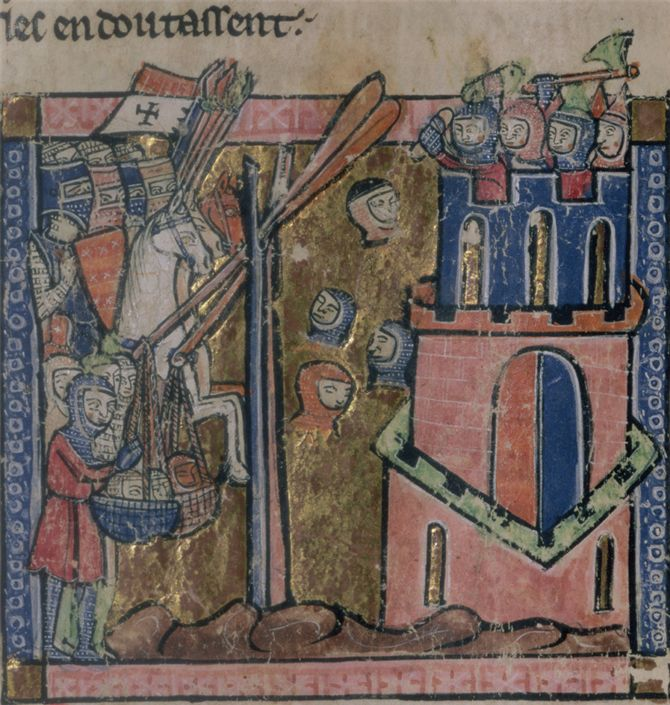 les en doutassent:~